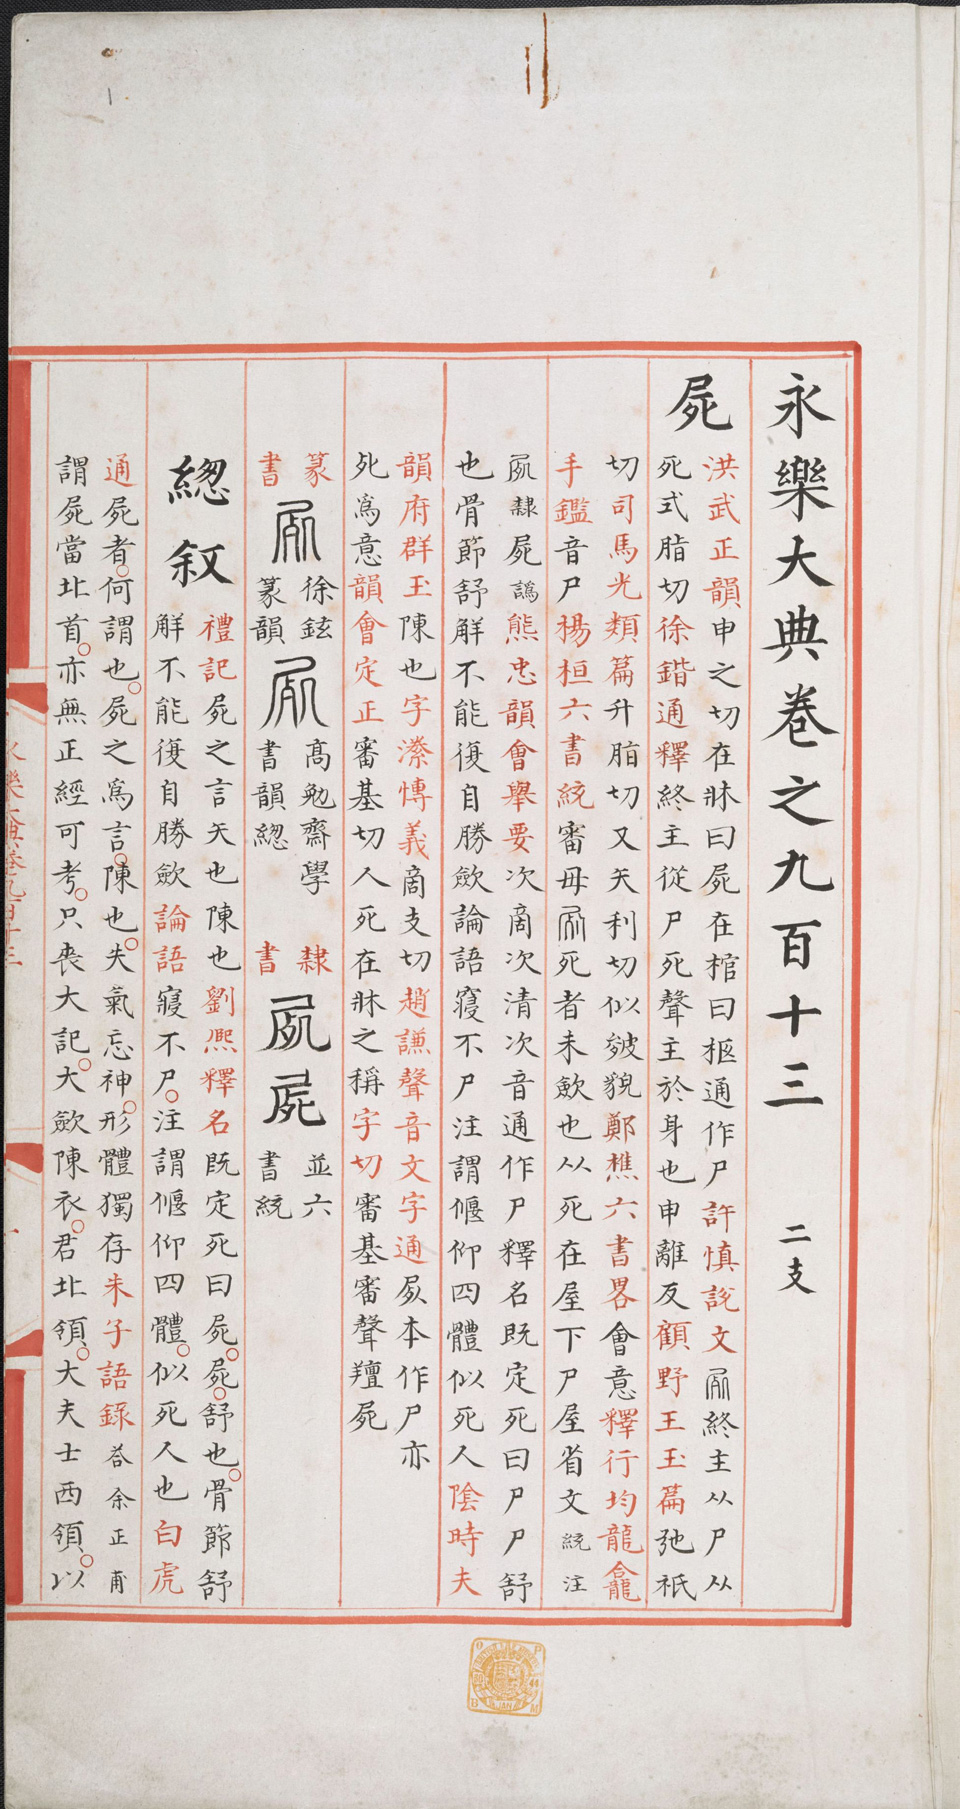 永樂大典卷之九百十三 二支
屍
洪武正韻申之切在牀曰屍在棺曰柩通作尸許慎說文終主从尸从
死式脂切徐鍇通釋終主從尸死聲主於身也申離反顧野王玉篇弛祇
切司馬光類篇升脂切又矢利切似皴貌鄭樵六書畧會意釋行均龍龕
手鑑音尸楊桓六書統審毋死者未斂也从死在屋下尸屋省文統注
隸屍譌熊忠韻會舉要次啇次清次音通作尸釋名既定死曰尸尸舒
也骨節舒解不能復自勝斂論語寢不尸注謂偃仰四體似死人陰時夫
韻府群玉陳也字潫博義啇支切趙謙聲音文字通本作尸亦
死為意韻會定正審基切人死在牀之稱字切審基審聲羶屍
篆書 徐鉉篆韻 高勉齋學書韻緫 隸書 屍 並六書統
緫叙
禮記屍之言矢也陳也劉熙釋名既定死曰屍屍舒也骨節舒
解不能復自勝斂論語寢不尸注謂偃仰四體似死人也白虎
通屍者何謂也屍之為言陳也失氣忘神形體獨存朱子語錄荅余正甫
謂屍當北首亦無正經可考只喪大記大斂陳衣君北領大夫士西領以
永樂大典卷九百十三
一